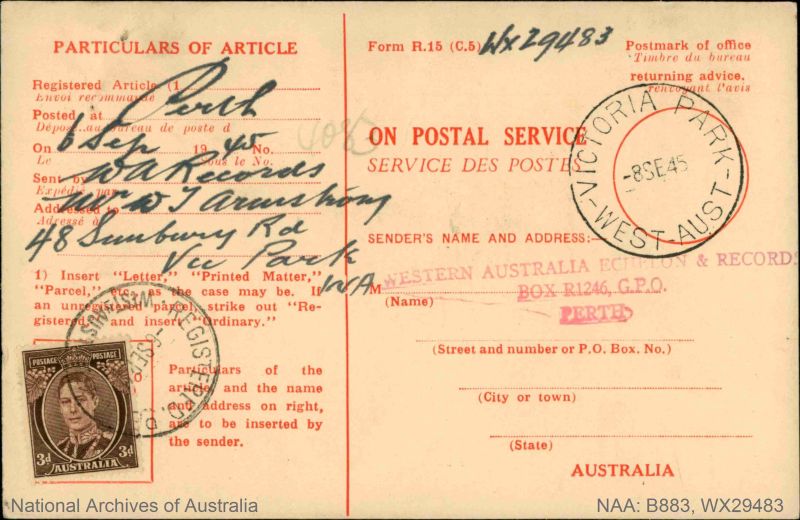 PARTICULARS OF ARTICLE
Registered Article (1
Envoi recommandé
Posted at Perth
Déposé au bureau de poste d
On 6 Sep 1945 No.
Le Sous le No.
Sent by W A Records
Expédié par
Addressed to Mr W J Armstrong
Adressé à
48 Sunbury Rd
Vic Park
WA
1) Insert "Letter," "Printed Matter,"
"Parcel," etc., as the case may be. If
an unregistered parcel, strike out "Re-
gistered" and insert "Ordinary."
Particulars of the
article and the name
and address on right,
are to be inserted by
the sender.
POSTAGE POSTAGE
3d AUSTRALIA 3d
REGISTERED
Form R.15 (C.5) WX29483
Postmark of office
Timbre du bureau
returning advice.
renvoyant l'avis
ON POSTAL SERVICE
SERVICE DES POSTES
VICTORIA PARK
-8SE45
WEST-AUST-
SENDER'S NAME AND ADDRESS:—
WESTERN AUSTRALIA ECHELON & RECORDS
M BOX R1246, G.P.O.
(Name)
PERTH
(Street and number or P.O. Box. No.)
(City or town)
(State)
AUSTRALIA
National Archives of Australia
NAA: B883, WX29483